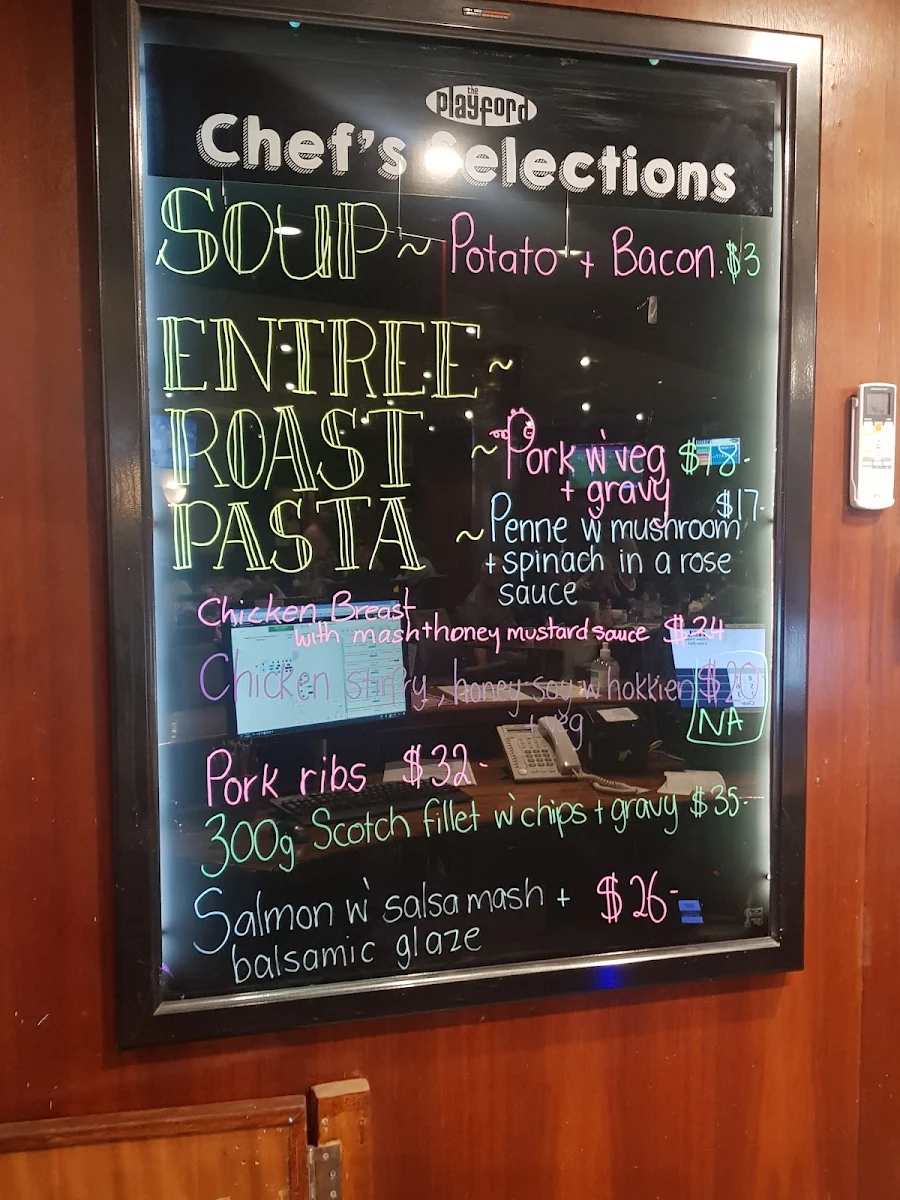 the playford
Chef's Selections
SOUP ~ Potato + Bacon. $3
ENTREE ~
ROAST ~ Pork w veg $18-
+ gravy
$17-
PASTA ~ Penne w mushroom
+ spinach in a rose
sauce
Chicken Breast
with mash + honey mustard sauce $24
Chicken stirfry, honey soy w hokkien $20
+ veg
NA
Pork ribs $32-
300g Scotch fillet w chips + gravy $35-
Salmon w salsa mash + $26-
balsamic glaze